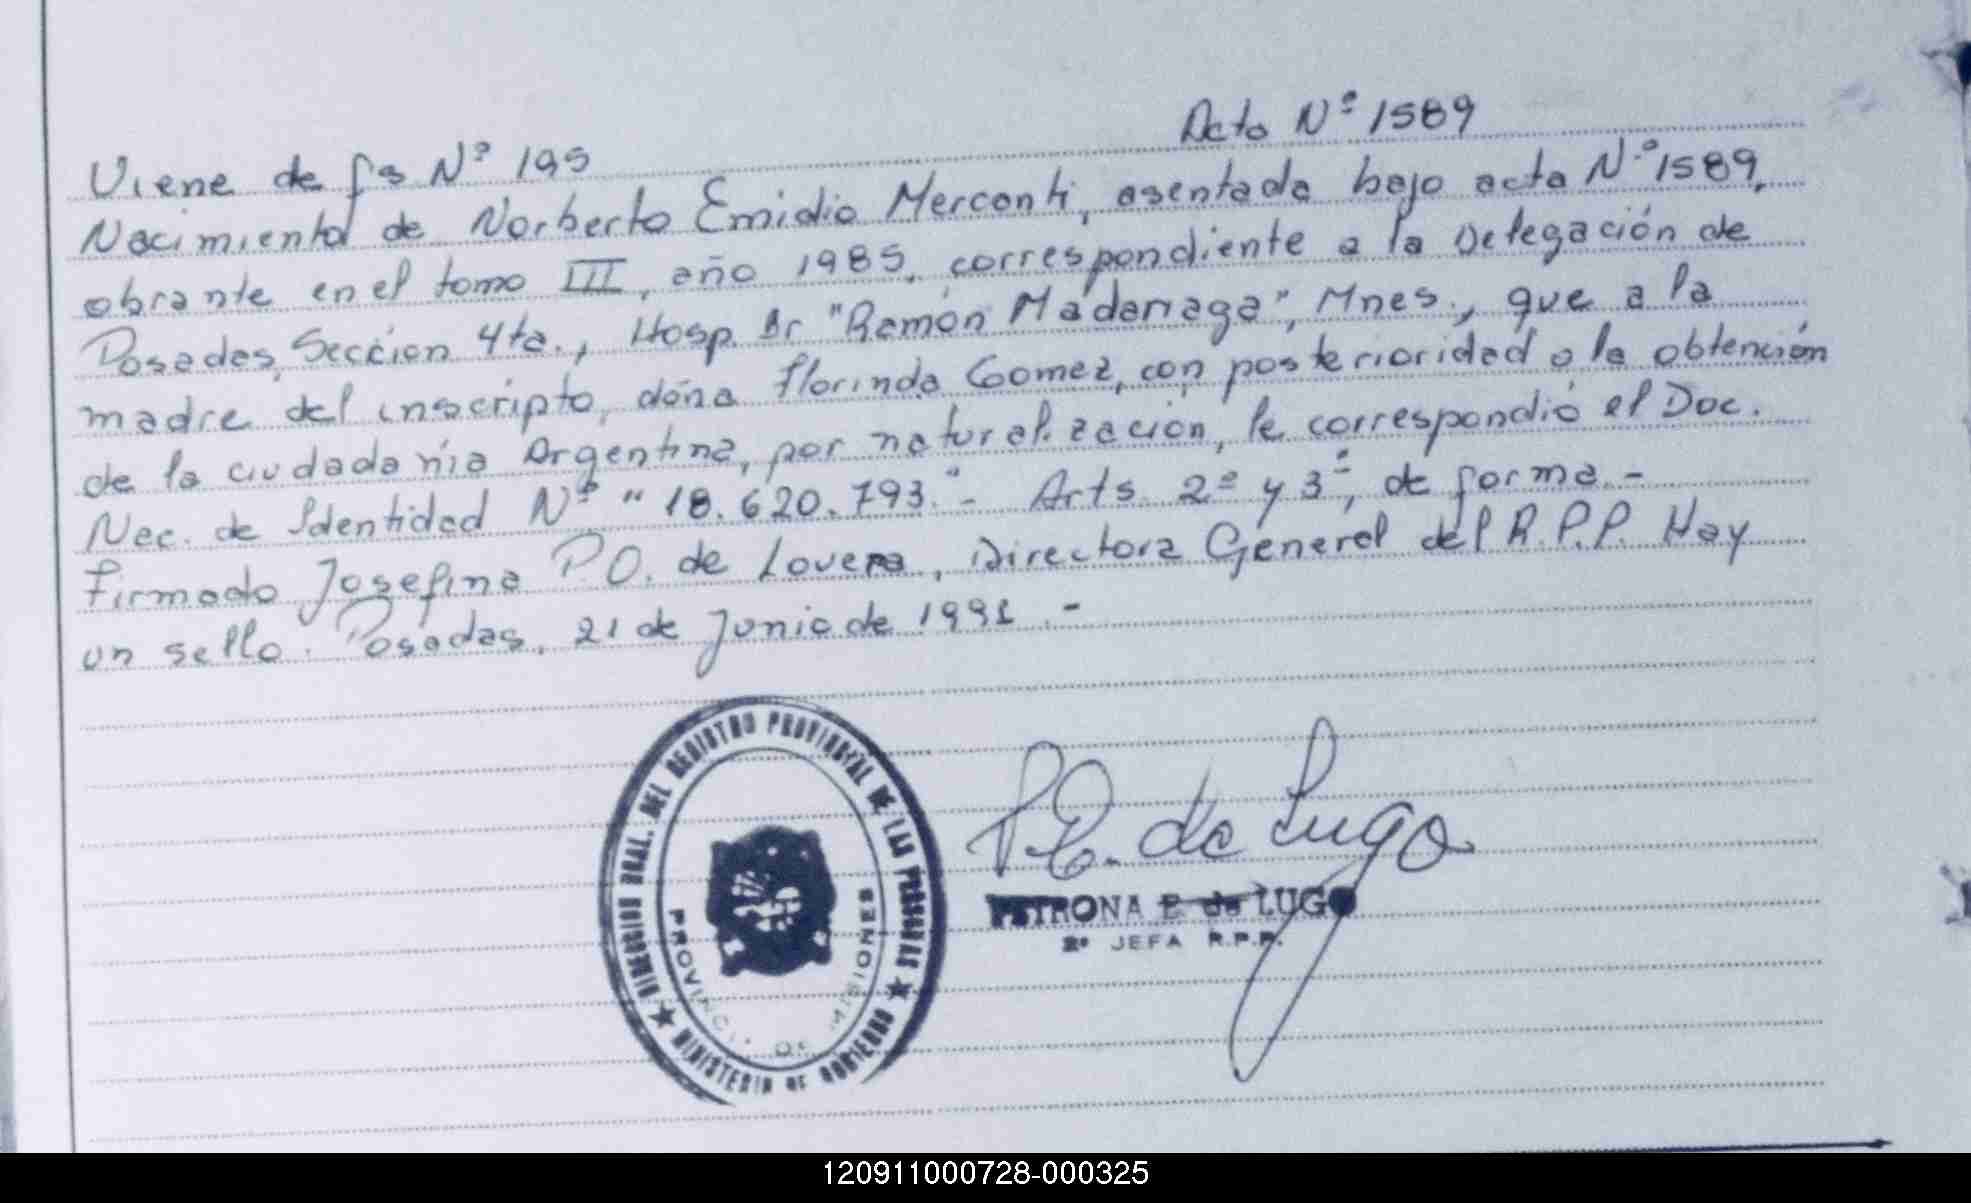 Acta Nº 1589
Viene de fs Nº 195
Nacimiento de Norberto Emidio Merconti, asentada bajo acta Nº 1589,
obrante en el tomo III, año 1985, correspondiente a la Delegación de
Posadas, Sección 4ta., Hosp. Dr "Ramón Madariaga", Mnes., que a la
madre del inscripto, doña Florinda Gomez, con posterioridad a la obtención
de la ciudadanía Argentina, por naturalización, le correspondió el Doc.
Nec. de Identidad Nº "18.620.793."- Arts. 2º y 3º, de forma.-
Firmado Josefina P.O. de Lovera, Directora General del R.P.P. Hay
un sello. Posadas, 21 de Junio de 1991.-
DIRECCION GRAL. DEL REGISTRO PROVINCIAL DE LAS PERSONAS
MINISTERIO DE GOBIERNO
PROVINCIA DE MISIONES
P.E. de Lugo
PETRONA E. de LUGO
2º JEFA R.P.P.
120911000728-000325